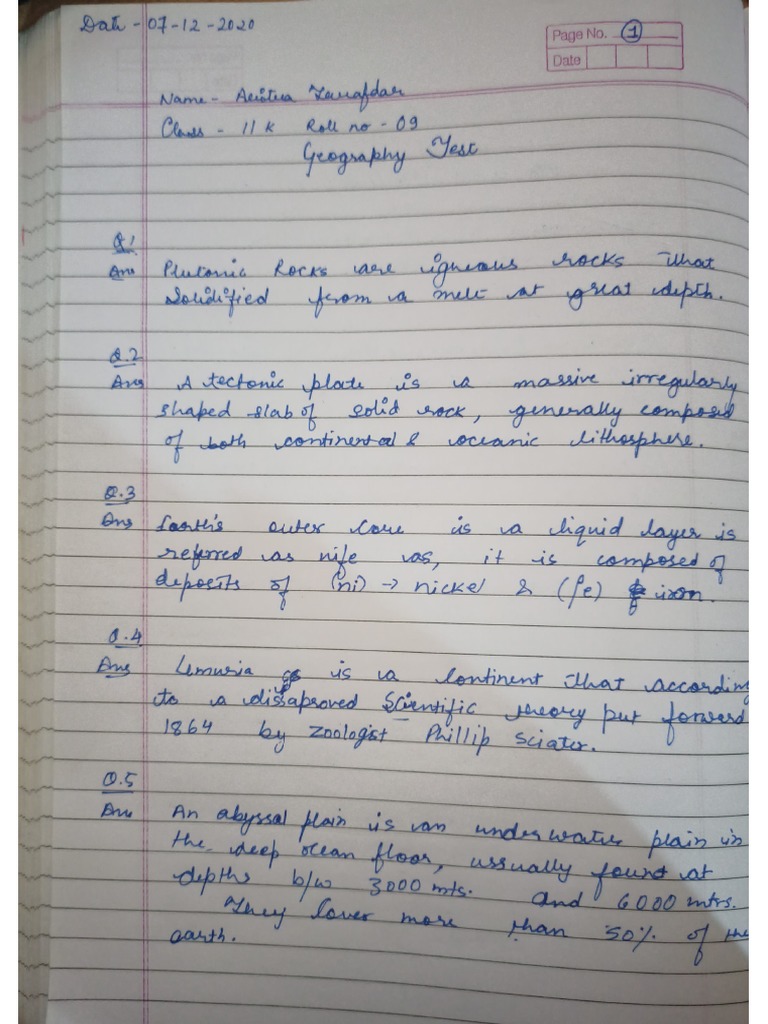 Date - 07-12-2020
Page No. 1
Date
Name -
Class - 11 K Roll no - 09
Geography Test
Q1
Ans Plutonic Rocks are igneous rocks that
solidified from a melt at great depth.
Q.2
Ans A tectonic plate is a massive irregularly
shaped slab of solid rock, generally composed
of both continental & oceanic lithosphere.
Q.3
Ans Earth's outer core is a liquid layer is
referred as nife as, it is composed of
deposits of (ni) → nickel & (fe) iron.
Q.4
Ans Lemuria is a Continent that according
to a dissaproved Scientific theory put forward
1864 by zoologist Phillip Sclater.
Q.5
Ans An abyssal plain is an underwater plain in
the deep ocean floor, ussually found at
depths b/w 3000 mts. and 6000 mtrs.
They cover more than 50% of the
earth.